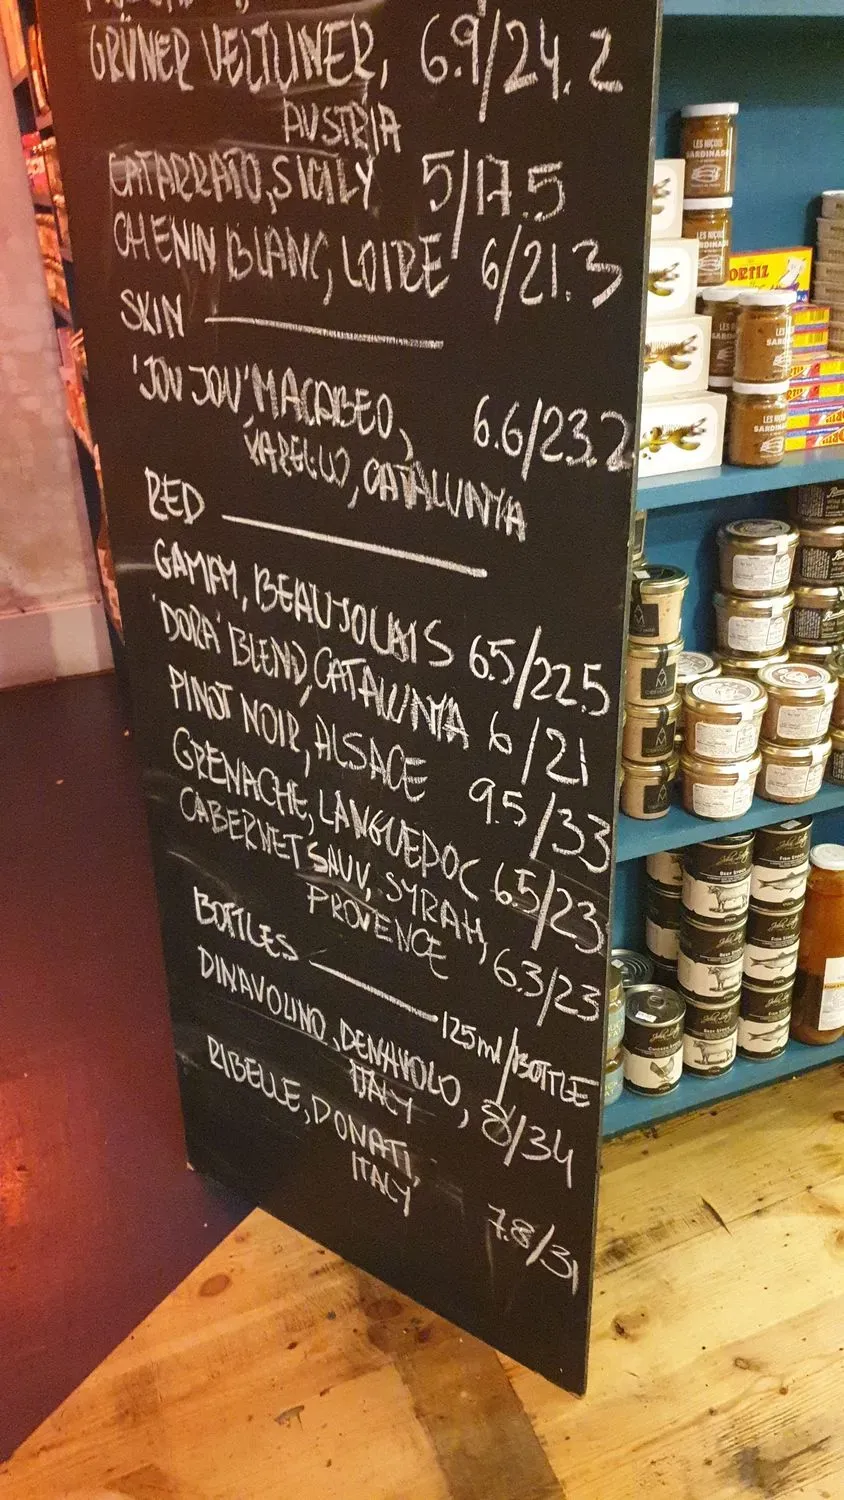 GRÜNER VELTLINER, 6.9/24.2
AUSTRIA
CATARRATO, SICILY 5/17.5
CHENIN BLANC, LOIRE 6/21.3
SKIN
'JOU JOU' MACABEO, 6.6/23.2
XARELLO, CATALUNYA
RED
GAMAY, BEAUJOLAIS 6.5/22.5
'DORA' BLEND, CATALUNYA 6/21
PINOT NOIR, ALSACE 9.5/33
GRENACHE, LANGUEDOC 6.5/23
CABERNET SAUV, SYRAH, 6.3/23
PROVENCE
BOTTLES 125ml/BOTTLE
DINAVOLINO, DENAVOLO, 8/34
ITALY
RIBELLE, DONATI, 7.8/31
ITALY
LES NIÇOIS
SARDINADE
LES NIÇOIS
ORTIZ
SARDINADE
BEEF STOCK
FISH STOCK
BEEF STOCK
FISH STOCK
BEEF STOCK
CHICKEN STOCK